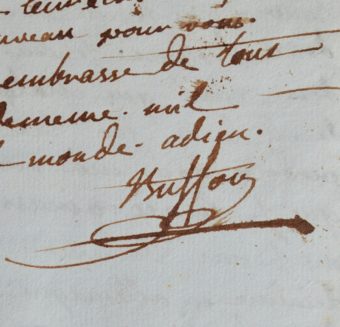 nveau pour vous.
embrasse de tout
de meme. nul
monde. adieu.
Buffon